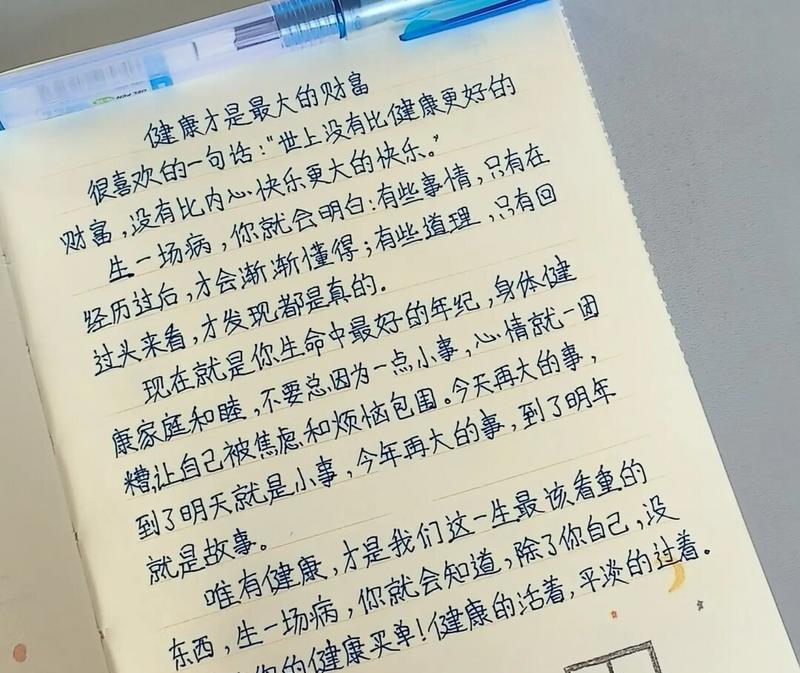 健康才是最大的财富
很喜欢的一句话：“世上没有比健康更好的
财富，没有比内心快乐更大的快乐。”
生一场病，你就会明白：有些事情，只有在
经历过后，才会渐渐懂得；有些道理，只有回
过头来看，才发现都是真的。
现在就是你生命中最好的年纪，身体健
康家庭和睦，不要总因为一点小事，心情就一团
糟，让自己被焦虑和烦恼包围。今天再大的事，
到了明天就是小事，今年再大的事，到了明年
就是故事。
唯有健康，才是我们这一生最该看重的
东西，生一场病，你就会知道，除了你自己，没
你的健康买单！健康的活着，平淡的过着。